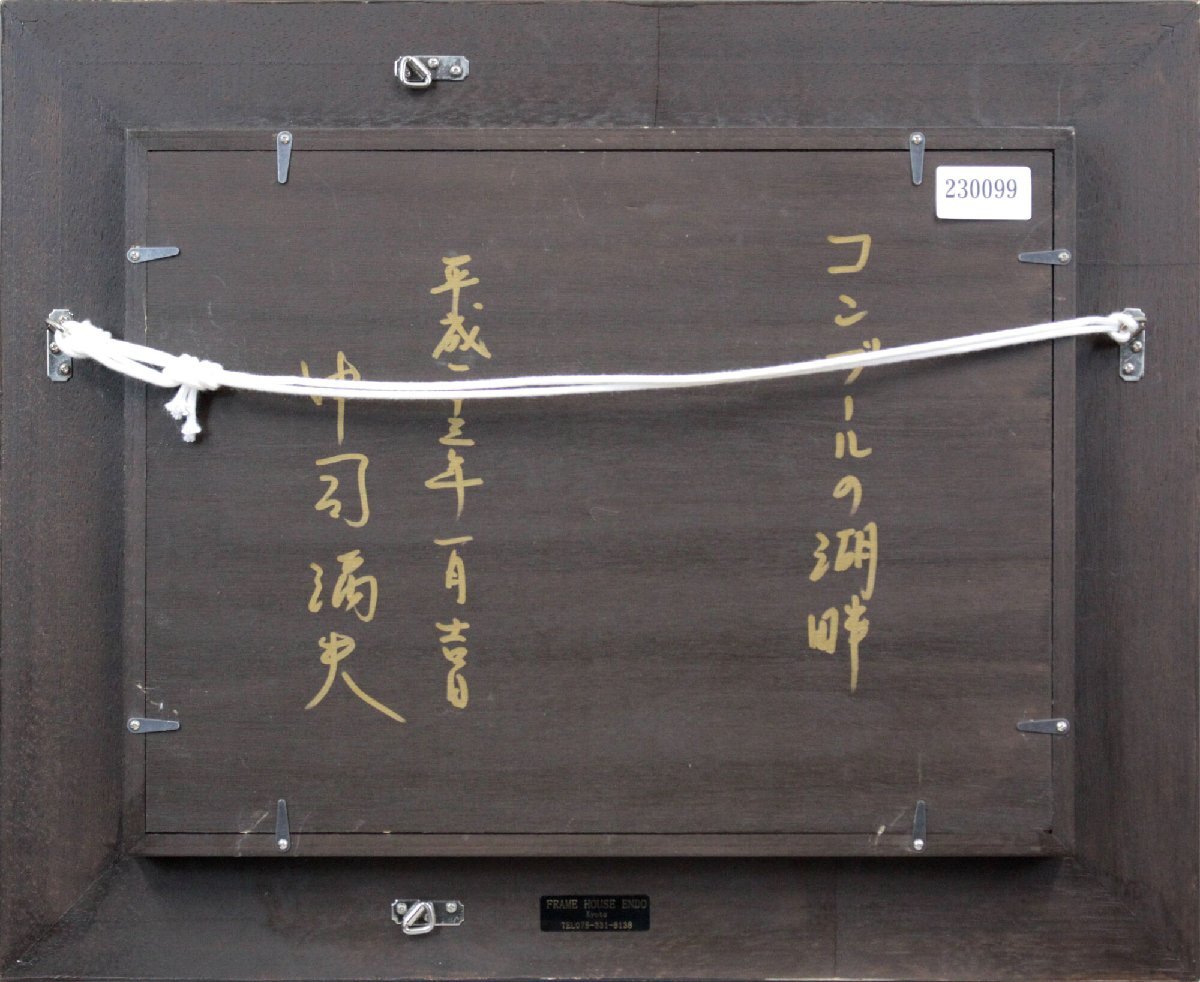 230099
コンブールの湖畔
平成 十三年一月吉日
中司満夫
FRAME HOUSE ENDO
Kyoto